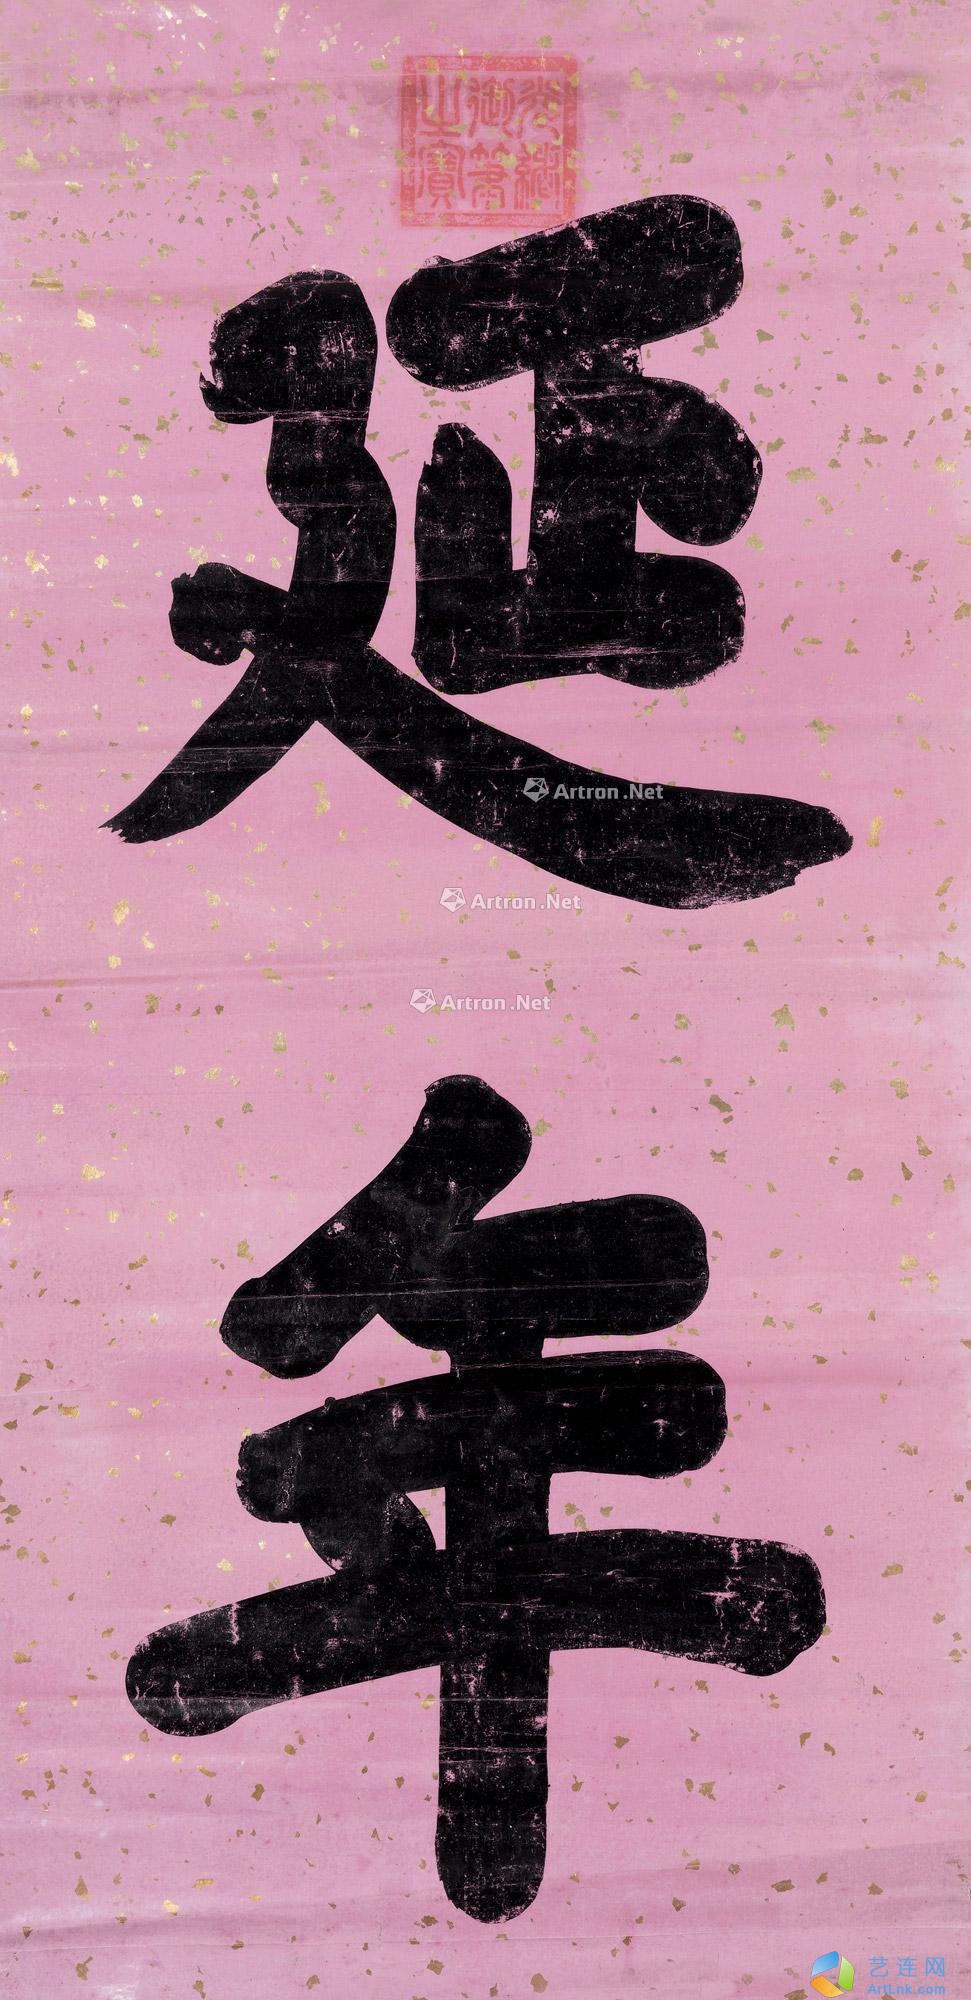 光緒御筆之寶
延年
Artron.Net
Artron.Net
Artron.Net
艺连网
ArtLnk.com